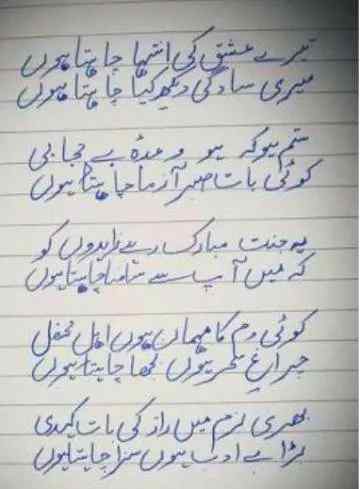 تیرے عشق کی انتہا چاہتا ہوں
میری سادگی دیکھ کیا چاہتا ہوں
ستم ہو کہ ہو وعدہ بے حجابی
کوئی بات صبر آزما چاہتا ہوں
یہ جنت مبارک رہے زاہدوں کو
کہ میں آپ سے سامنا چاہتا ہوں
کوئی دم کا مہماں ہوں اہل محفل
چراغ سحر ہوں بجھا چاہتا ہوں
بھری بزم میں راز کی بات کہدی
بڑا بے ادب ہوں سزا چاہتا ہوں